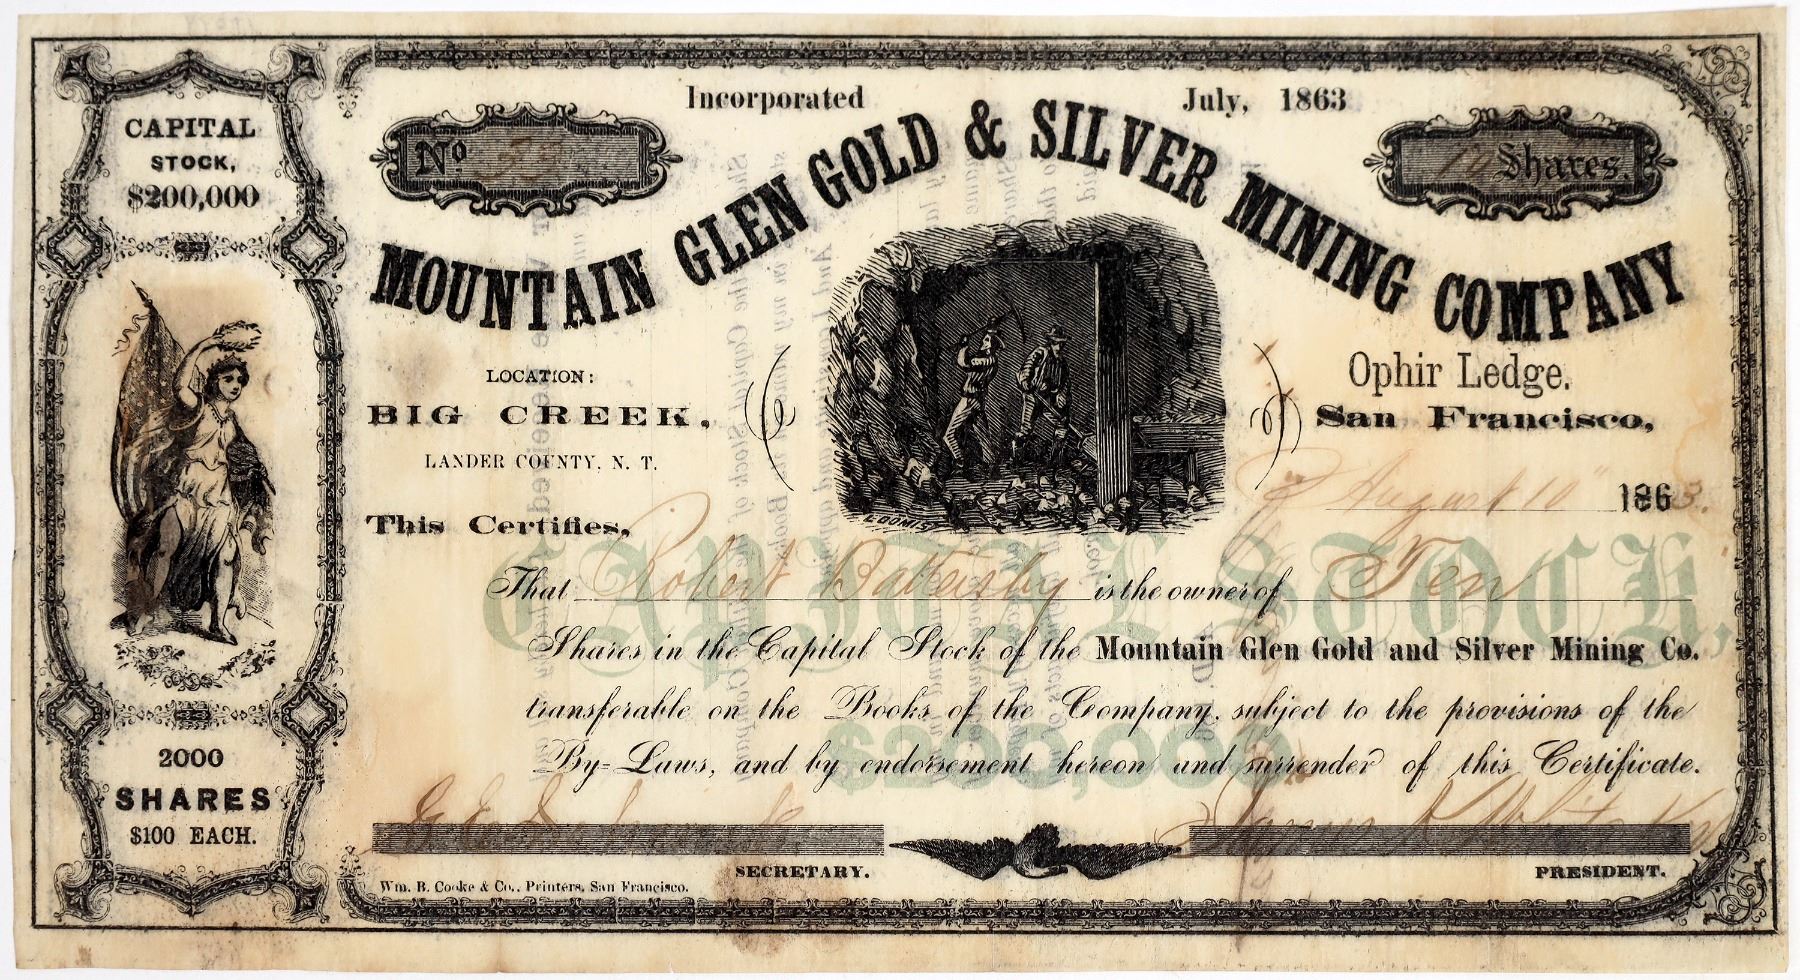 Incorporated July, 1863
No
10 Shares.
CAPITAL
STOCK,
$200,000
MOUNTAIN GLEN GOLD & SILVER MINING COMPANY
LOCATION:
BIG CREEK,
LANDER COUNTY, N. T.
Ophir Ledge.
San Francisco,
August 10 1863.
LOOMIS
This Certifies,
CAPITAL STOCK,
That Robert Battersby is the owner of Ten
Shares in the Capital Stock of the Mountain Glen Gold and Silver Mining Co.
transferable on the Books of the Company, subject to the provisions of the
$200,000
By-Laws, and by endorsement hereon and surrender of this Certificate.
2000
SHARES
$100 EACH.
James
SECRETARY.
PRESIDENT.
Wm. B. Cooke & Co., Printers, San Francisco.